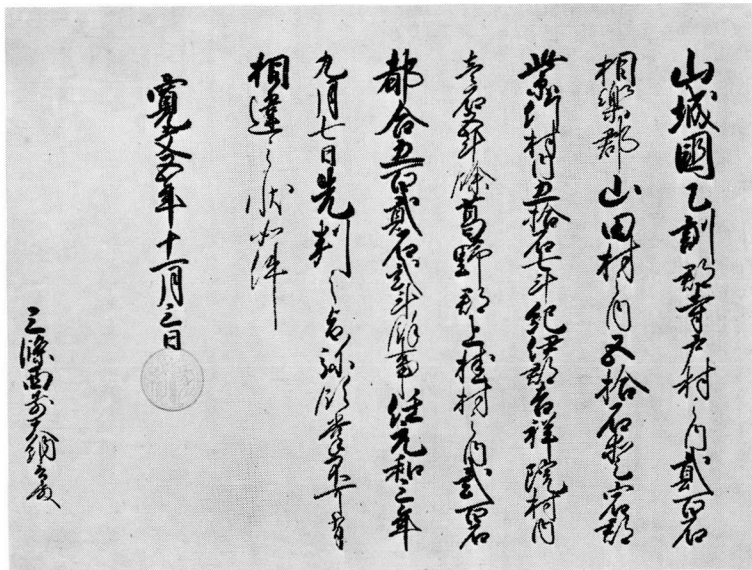 山城國乙訓郡寺戸村之内貳百石
相樂郡山田村之内五拾石愛宕郡
紫竹村内五拾石七斗紀伊郡吉祥院村内
壱石五斗餘葛野郡上桂村之内貳百石
都合五百貳石貳斗餘事任元和三年
九月七日先判之旨弥領掌不可有
相違之状如件
寛文五年十一月三日
三條西前大納言殿